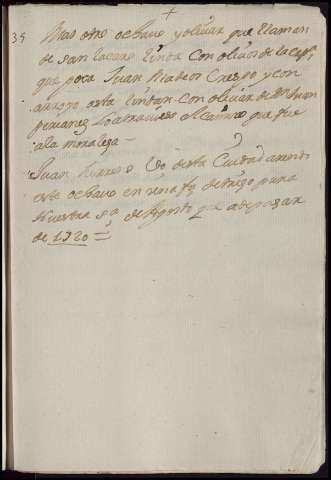 +
35
Mas otro ochavo y olivar que llaman
de san lazaro linda con olivos de la cap.
que goza Juan Mateos Crespo y con
arroyo esta linda con olivar de Dn Juan
y lo atraviesa el camino que fue
a la moraleja
Juan Herrero Vo de esta Ciudad arrendo
este ochavo en una fg de trigo para
Nuestra Sa de Agosto que a de pagar
de 1720